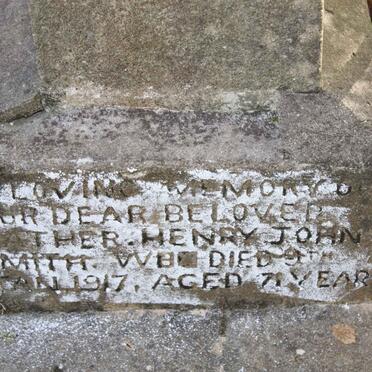 LOVING MEMORY O
UR DEAR BELOVED
ATHER. HENRY JOHN
MITH. WHO DIED 9TH
JAN. 1917, AGED 71 YEAR